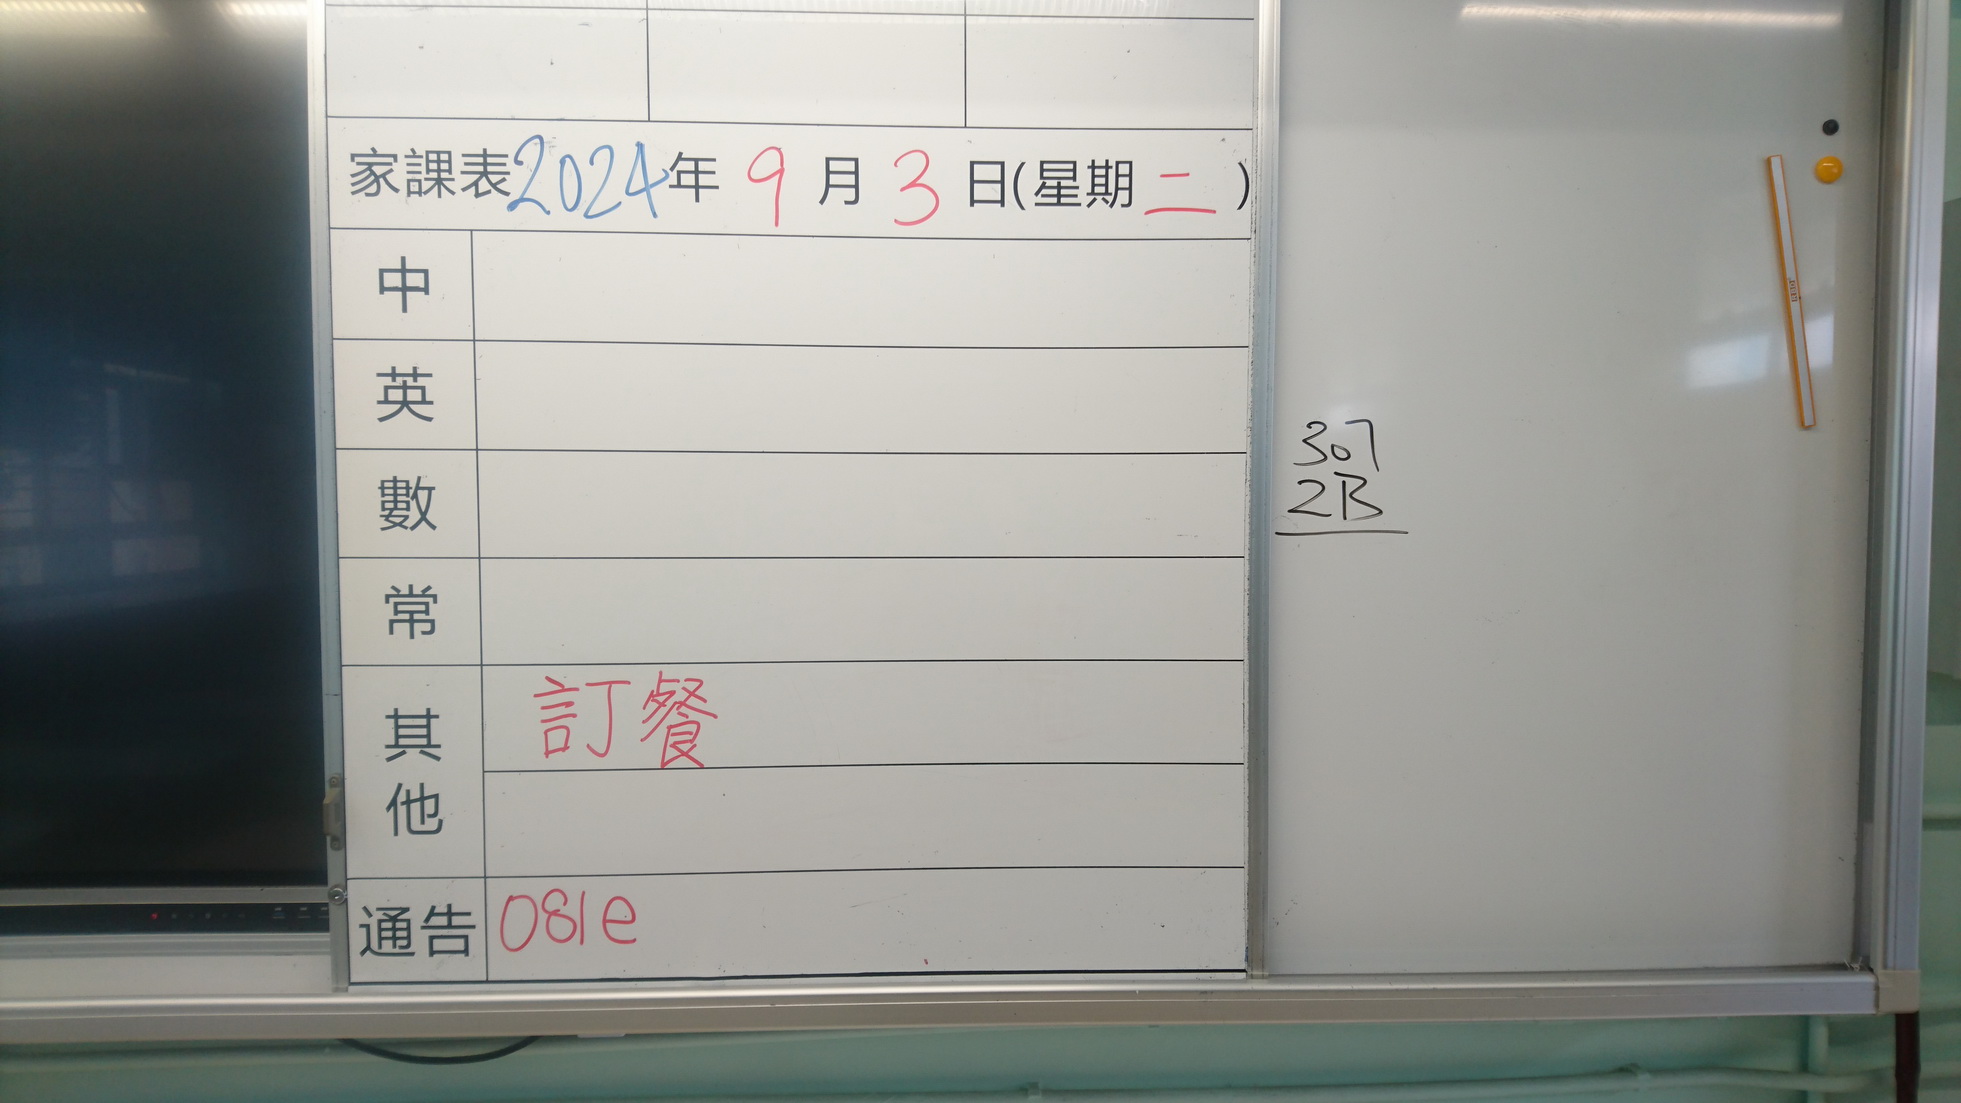 家課表2024年 9 月 3 日(星期 二 )
中
英
數
常
其他
訂餐
通告
081e
307
2B